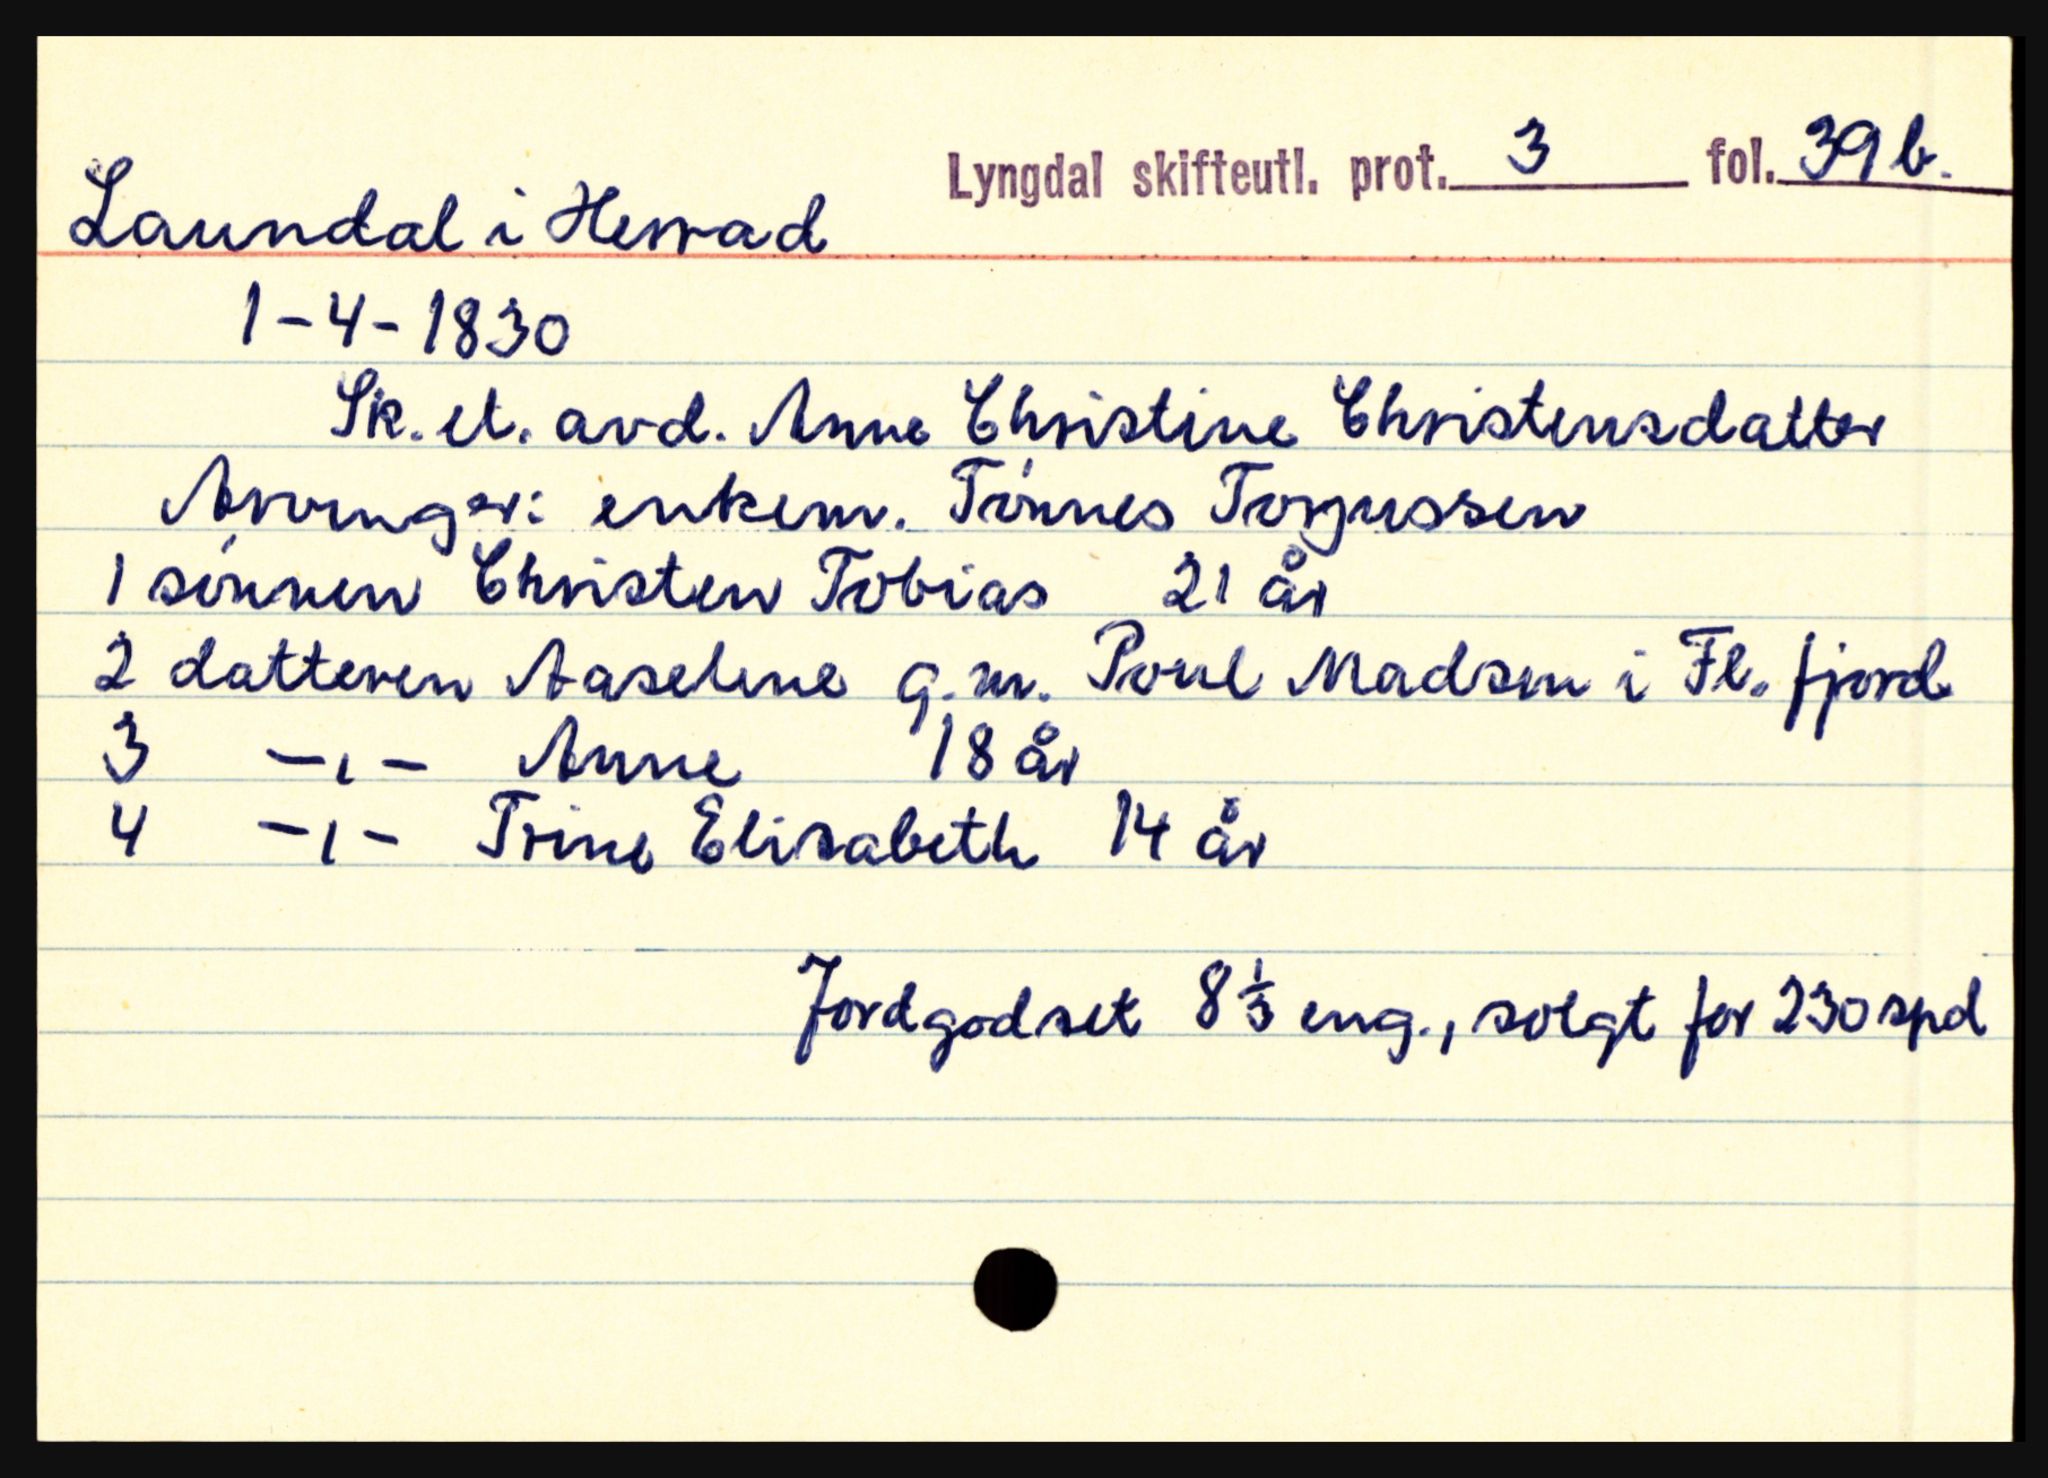 Lyngdal skifteutl. prot. 3 fol. 39b.
Laundal i Herrad
1-4-1830
Sk. et. avd. Anne Christine Christensdatter
Arvinger: enkem. Tönnes Torjussen
1 sönnen Christen Tobias 21 år
2 datteren Aaselene g.m. Poul Madsen i Fl. fjord
3 -ı- Anne 18 år
4 -ı- Trine Elisabeth 14 år
Jordgodset 8 1/3 eng., solgt for 230 spd